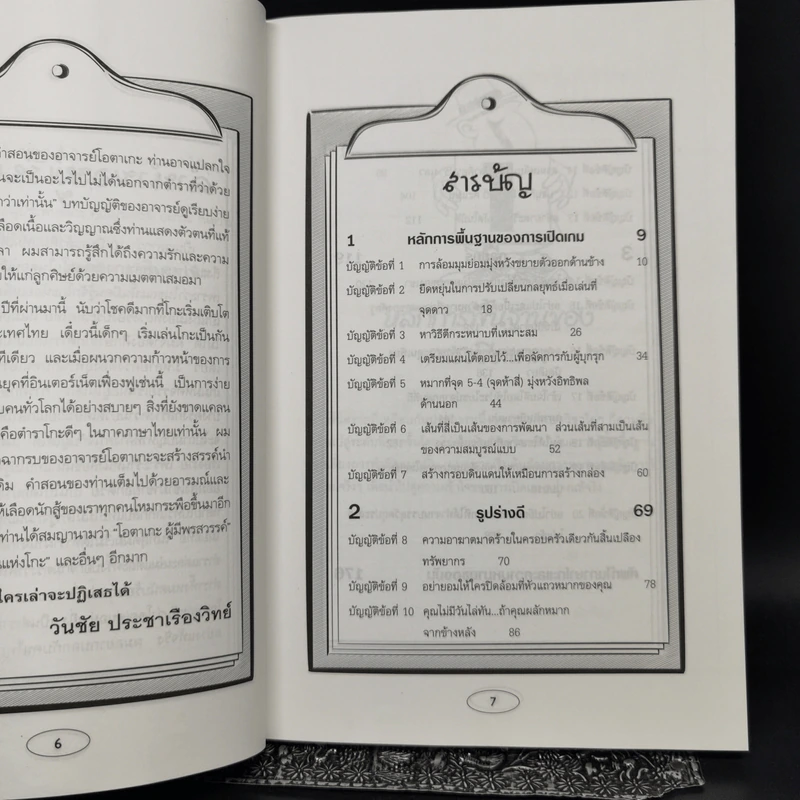 คำสอนของอาจารย์โอตาเกะ ท่านอาจแปลกใจ
จะเป็นอะไรไปไม่ได้นอกจากตำราที่ว่าด้วย
เท่านั้น" บทบัญญัติของอาจารย์ดูเรียบง่าย
เลือดเนื้อและวิญญาณซึ่งท่านแสดงตัวตนที่แท้
ผมสามารถรู้สึกได้ถึงความรักและความ
ให้แก่ลูกศิษย์ด้วยความเมตตาเสมอมา
ปีที่ผ่านมานี้ นับว่าโชคดีมากที่โกะเริ่มเติบโต
ประเทศไทย เดี๋ยวนี้เด็กๆ เริ่มเล่นโกะเป็นกัน
ทีเดียว และเมื่อผนวกความก้าวหน้าของการ
ยุคที่อินเตอร์เน็ตเฟื่องฟูเช่นนี้ เป็นการง่าย
คนทั่วโลกได้อย่างสบายๆ สิ่งที่ยังขาดแคลน
คือตำราโกะดีๆ ในภาคภาษาไทยเท่านั้น ผม
ฉากรบของอาจารย์โอตาเกะจะสร้างสรรค์นำ
คำสอนของท่านเต็มไปด้วยอารมณ์และ
ให้เลือดนักสู้ของเราทุกคนโหมกระพือขึ้นมาอีก
ท่านได้สมญานามว่า "โอตาเกะ ผู้มีพรสวรรค์"
แห่งโกะ" และอื่นๆ อีกมาก
ใครเล่าจะปฏิเสธได้
วันชัย ประชาเรืองวิทย์
6
สารบัญ
1 หลักการพื้นฐานของการเปิดเกม 9
บัญญัติข้อที่ 1 การล้อมมุมย่อมมุ่งหวังขยายตัวออกด้านข้าง 10
บัญญัติข้อที่ 2 ยืดหยุ่นในการปรับเปลี่ยนกลยุทธ์เมื่อเล่นที่
จุดดาว 18
บัญญัติข้อที่ 3 หาวิธีตีกระหนาบที่เหมาะสม 26
บัญญัติข้อที่ 4 เตรียมแผนโต้ตอบไว้...เพื่อจัดการกับผู้บุกรุก 34
บัญญัติข้อที่ 5 หมากที่จุด 5-4 (จุดห้าสี่) มุ่งหวังอิทธิพล
ด้านนอก 44
บัญญัติข้อที่ 6 เส้นที่สี่เป็นเส้นของการพัฒนา ส่วนเส้นที่สามเป็นเส้น
ของความสมบูรณ์แบบ 52
บัญญัติข้อที่ 7 สร้างกรอบดินแดนให้เหมือนการสร้างกล่อง 60
2 รูปร่างดี 69
บัญญัติข้อที่ 8 ความอาฆาตมาดร้ายในครอบครัวเดียวกันสิ้นเปลือง
ทรัพยากร 70
บัญญัติข้อที่ 9 อย่ายอมให้ใครปิดล้อมที่หัวแถวหมากของคุณ 78
บัญญัติข้อที่ 10 คุณไม่มีวันไล่ทัน...ถ้าคุณผลักหมาก
จากข้างหลัง 86
7